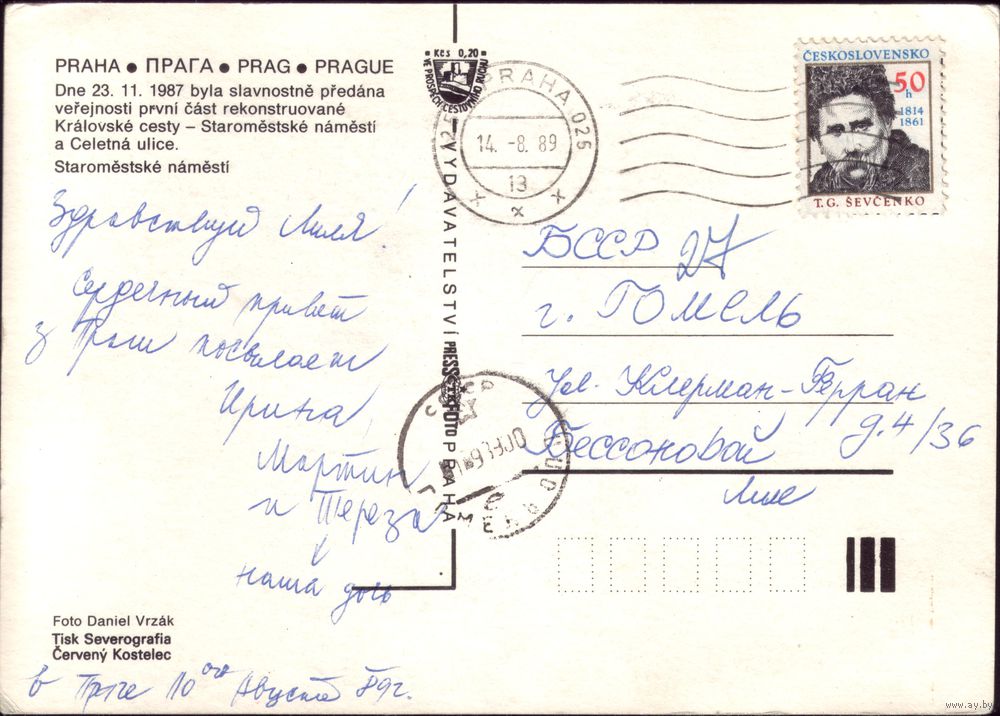 PRAHA ● ПРАГА ● PRAG ● PRAGUE
Dne 23. 11. 1987 byla slavnostně předána
veřejnosti první část rekonstruované
Královské cesty – Staroměstské náměstí
a Celetná ulice.
Staroměstské náměstí
Здравствуй Лиля!
Сердечный привет
з Праги посылает
Ирина,
Мартин
и Тереза
наша дочь
Foto Daniel Vrzák
Tisk Severografia
Červený Kostelec
в Праге 10ого Августа 89г.
Kčs 0,20
VE PROSPĚCH CESTOVNÍHO RUCHU
VYDAVATELSTVÍ PRESSFOTO PRAHA
PRAHA 025
14. -8. 89
13
СССР
ГОМЕЛЬ
ČESKOSLOVENSKO
50 h
1814
1861
T. G. ŠEVČENKO
БССР 27
г. ГОМЕЛЬ
Ул. Клерман-Ферран
д. 4/36
Бессоновой
Лиле
www.ay.by